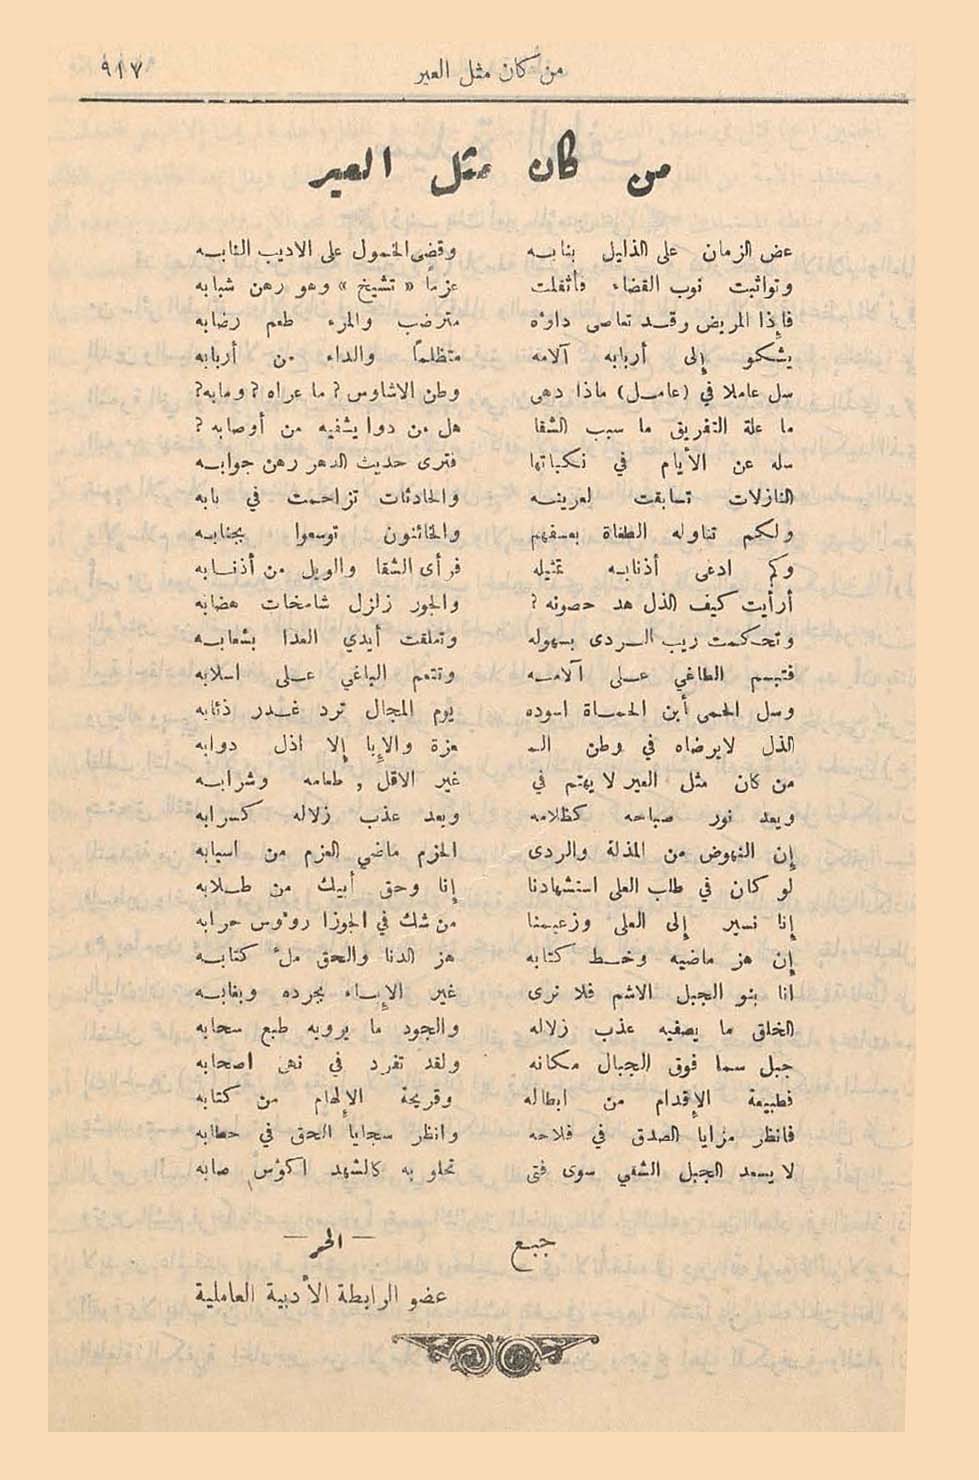 من كان مثل العير ٩١٧
من كان مثل العير
عض الزمان على الذليل بنابه وقضى الخمول على الاديب النابه
وتواثبت نوب القضاء فأثقلت عزماً « تشيخ » وهو رهن شبابه
فإذا المريض وقد تعاصى داؤه مترضب والمرء طعم رضابه
يشكو إلى أربابه آلامه متظلماً والداء من أربابه
سل عاملا في (عامل) ماذا دهى وطن الاشاوس؟ ما عراه؟ ومابه؟
ما علة التفريق ما سبب الشقا هل من دوا يشفيه من أوصابه ؟
سله عن الأيام في نكباتها فترى حديث الدهر رهن جوابه
النازلات تسابقت لعرينه والحادثات تزاحمت في بابه
ولكم تناوله الطغاة بعسفهم والخائنون توسعوا بجنابه
وكم ادعى أذنابه تمثيله فرأى الشقا والويل من أذنابه
أرأيت كيف الذل هد حصونه ؟ والجور زلزل شامخات هضابه
وتحكمت ريب الردى بسهوله وتعلقت أيدي العدا بشعابه
فتبسم الطاغي على آلامه وتنعم الباغي على اسلابه
وسل الحمى أين الحماة اسوده يوم المجال ترد غدر ذئابه
الذل لايرضاه في وطن الـ عزة والإبا إلا اذل دوابه
من كان مثل العير لا يهتم في غير الاقل , طعامه وشرابه
ويعد نور صباحه كظلامه وبعد عذب زلاله كسرابه
إن النهوض من المذلة والردى الحزم ماضي العزم من اسبابه
لو كان في طلب العلى استشهادنا إنا وحق أبيك من طلابه
إنا نسير إلى العلى وزعيمنا من شك في الجوزا رؤوس حرابه
إن هز ماضيه وخط كتابه هز الدنا والحق ملء كتابه
انا بنو الجبل الاشم فلا نرى غير الإباء بجرده وبغابه
الخلق ما يصفيه عذب زلاله والجود ما يرويه طبع سحابه
جبل سما فوق الجبال مكانه ولقد تفرد في نهى اصحابه
فطبيعة الإقدام من ابطاله وقريحة الإلهام من كتابه
فانظر مزايا الصدق في فلاحه وانظر سجايا الحق في حطابه
لا يسعد الجبل الشقي سوى فتى تحلو به كالشهد اكؤس صابه
جبع — الحر —
عضو الرابطة الأدبية العاملية